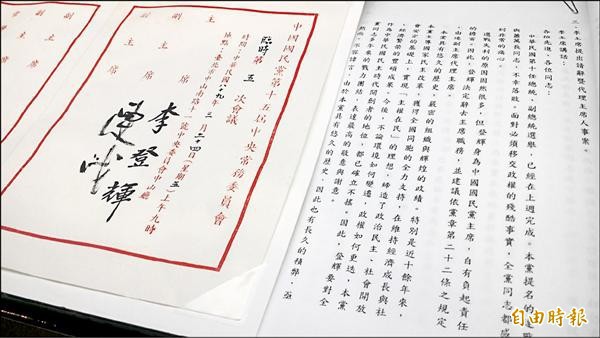 三、李主席提出請辭暨代理主席人事案。
李主席講話：
各位先進、各位同志：
中華民國第十任總統、副總統選舉，已經在上週完成。本黨提名的連戰
與蕭萬長同志，不幸落敗，面對必須移交政權的殘酷事實，全黨同志都感
到非常的痛心。
選戰失利的原因固然很多，但登輝身為中國國民黨主席，自有負起責任
的擔當。因此，登輝決定辭去主席職務，並建議依黨章第二十二條之規定
，由連副主席代理主席。
本黨具有悠久的歷史、嚴密的組織與輝煌的政績。特別是近十餘年來，
本黨主導國家民主改革，獲得全國同胞的全力支持，在維持經濟成長與社
會安定的基礎上，實現「主權在民」的理想，締造了政治民主、社會開放
、經濟繁榮的豐碩成果。今後，不論環境如何變遷，政權如何更迭，本黨
作為中華民國民主時代開創者的地位，都已確立不搖。因此，登輝要對全
黨同志多年來的戮力團結，表達最高的敬意與謝意。
然而，不容諱言，由於本黨具有悠久的歷史，因此也有長久的積弊，亟
中國國民黨第十五屆中央常務委員會
臨時第五次會議
時間：中華民國八十九年三月二十四日（星期五）上午九時
地點：臺北市中山南路十一號中央委員會中山廳
主席 李登輝
副主席 連戰
副主席
副主席
自由時報